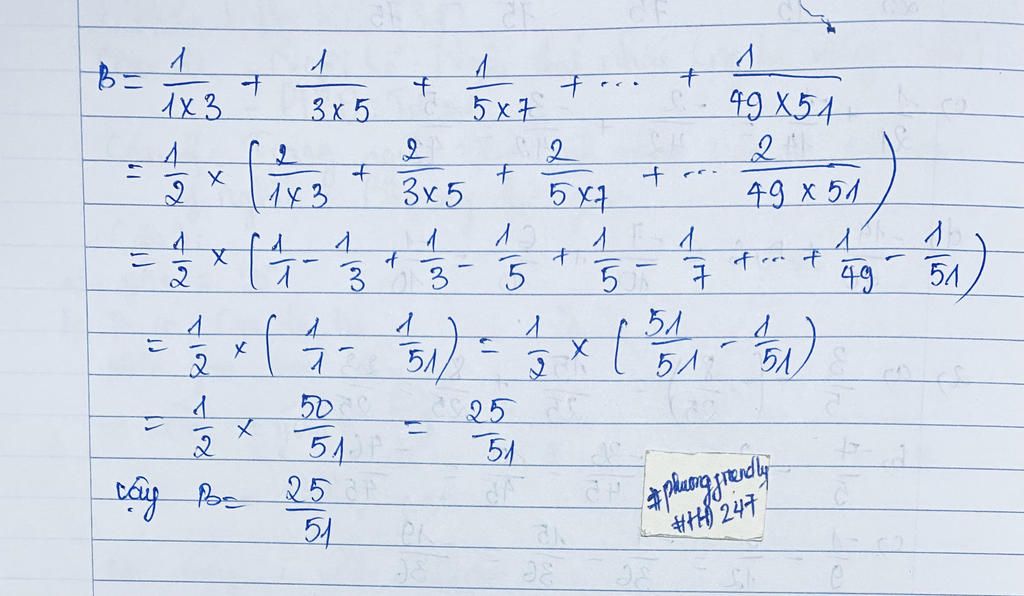 B = 1/(1×3) + 1/(3×5) + 1/(5×7) + ... + 1/(49×51)
= 1/2 × (2/(1×3) + 2/(3×5) + 2/(5×7) + ... 2/(49×51))
= 1/2 × (1/1 - 1/3 + 1/3 - 1/5 + 1/5 - 1/7 + ... + 1/49 - 1/51)
= 1/2 × (1/1 - 1/51) = 1/2 × (51/51 - 1/51)
= 1/2 × 50/51 = 25/51
vậy B = 25/51
#phuongfriendly
#HĐ 247